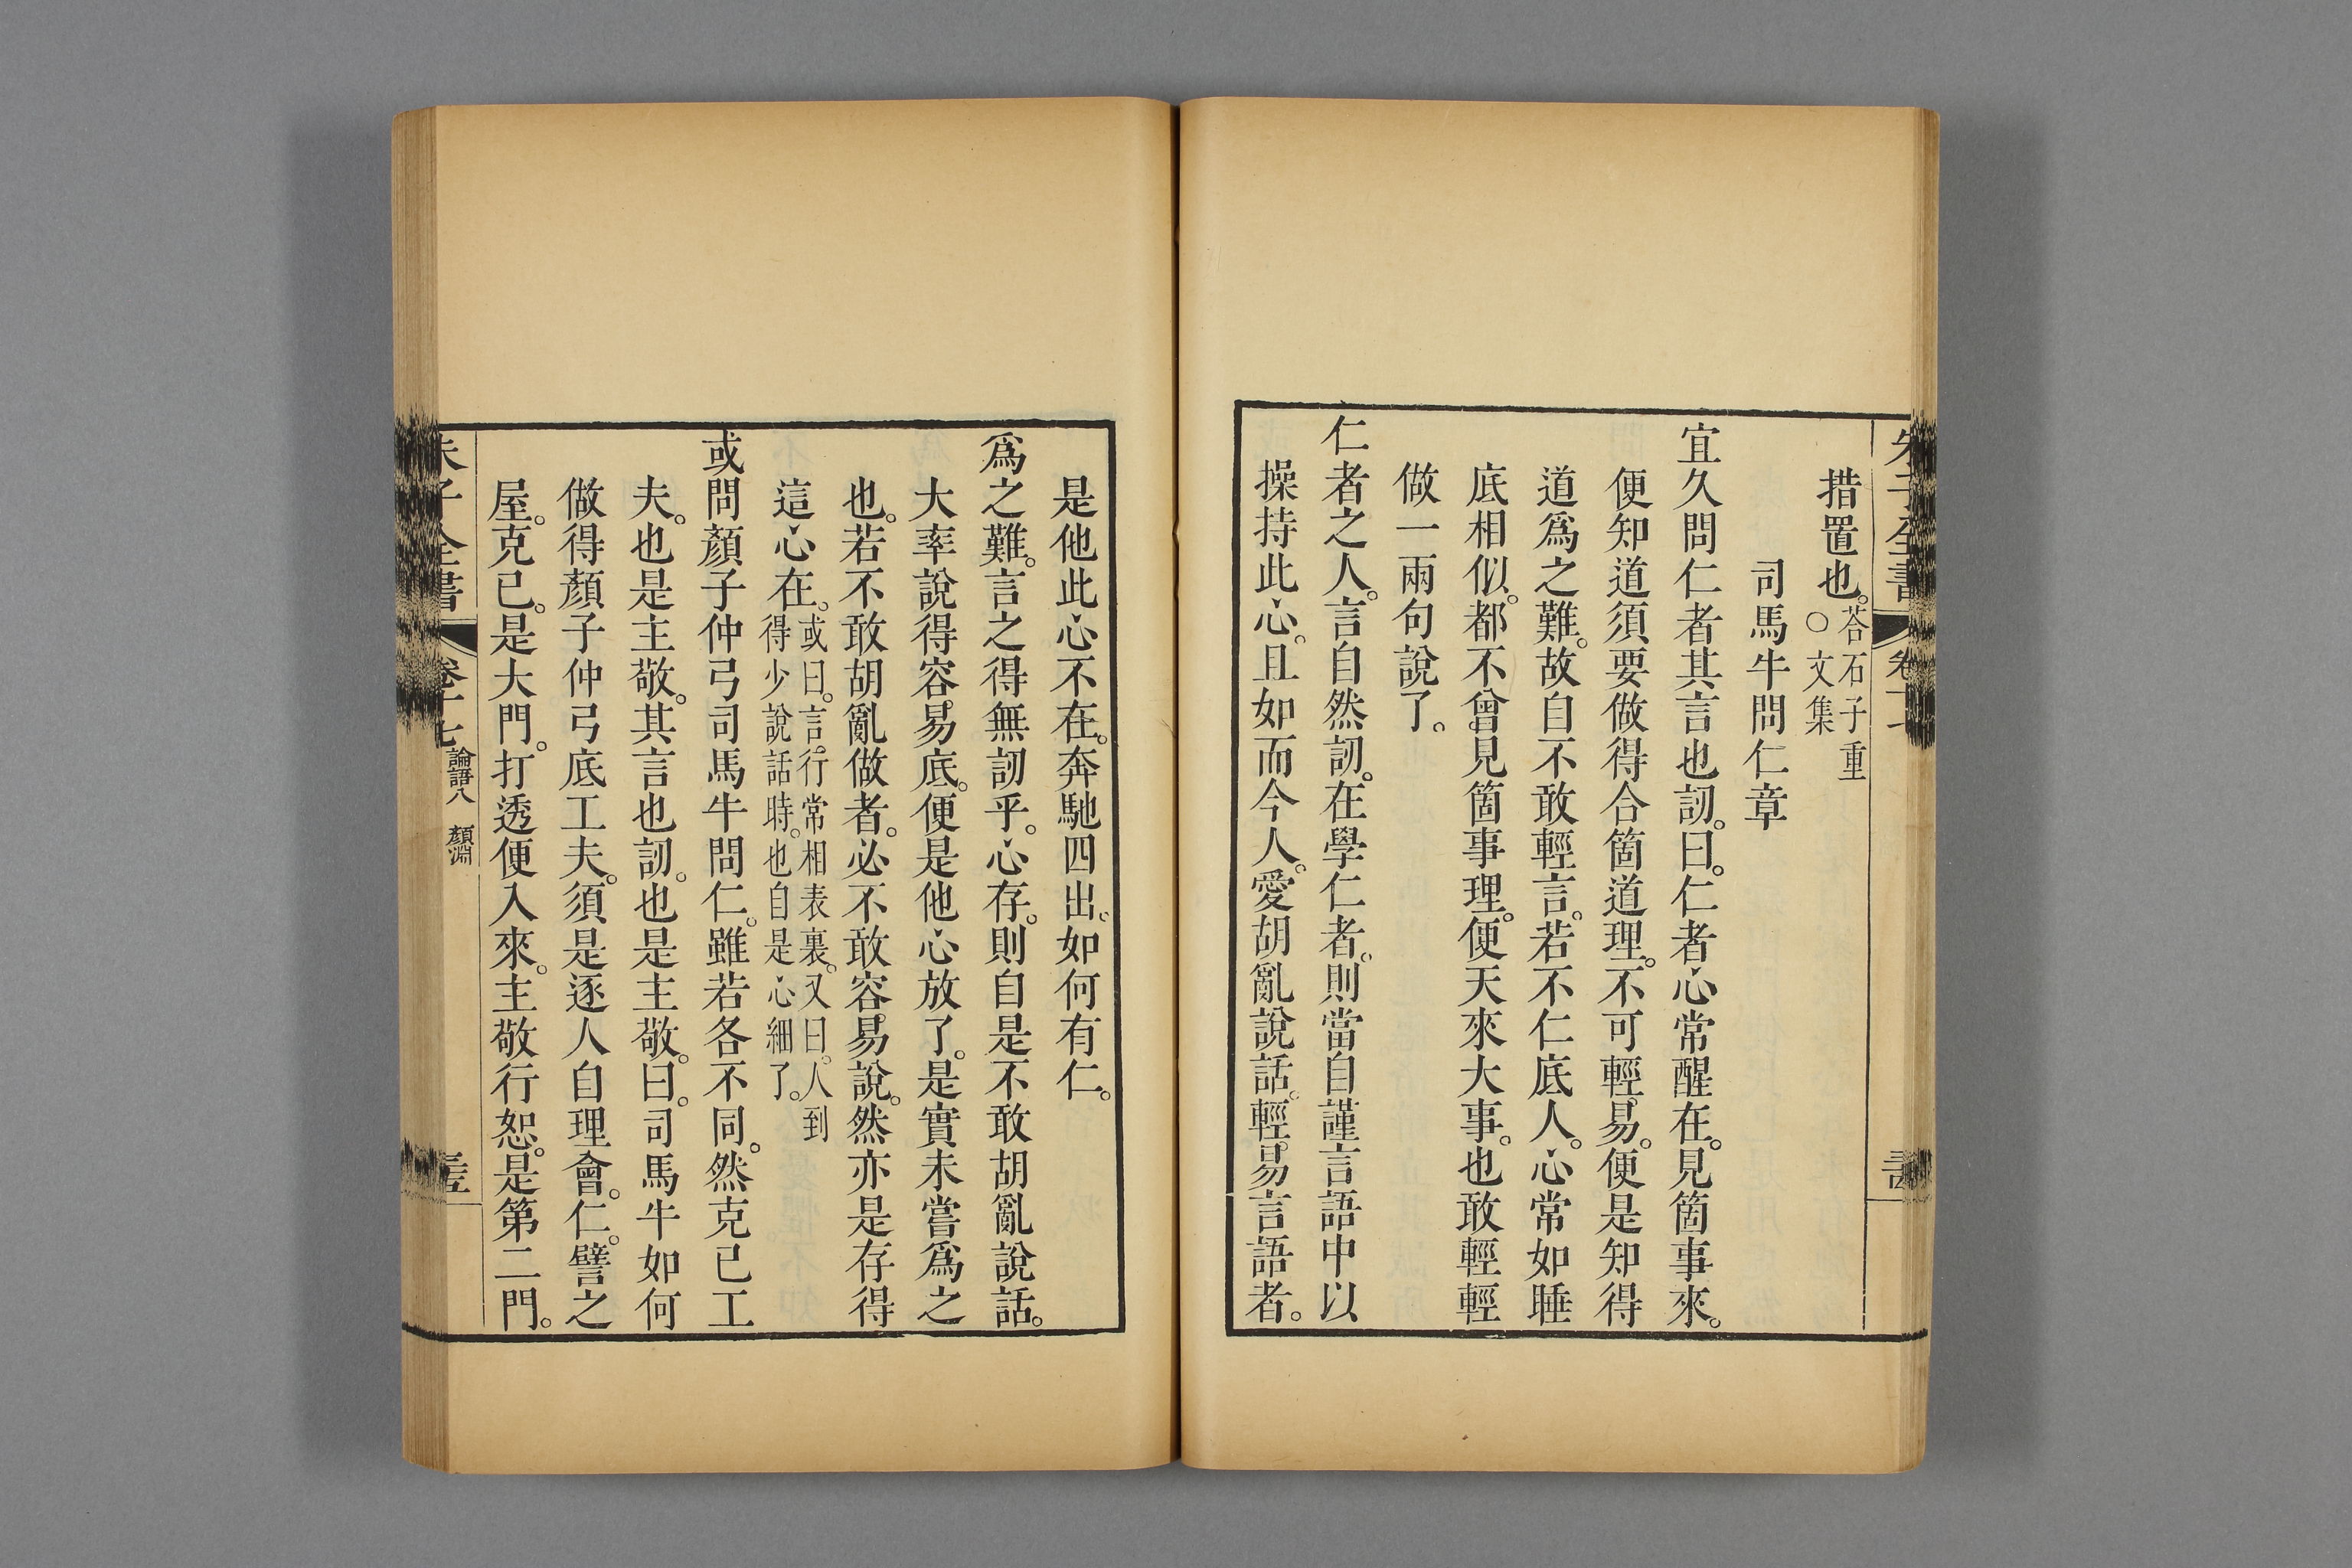 朱子全書 卷十七
措置也。答石子重
○文集
司馬牛問仁章
宜久問仁者其言也訒。曰。仁者心常醒在。見箇事來。
便知道須要做得合箇道理。不可輕易。便是知得
道爲之難。故自不敢輕言。若不仁底人。心常如睡
底相似。都不曾見箇事理。便天來大事。也敢輕輕
做一兩句說了。
仁者之人。言自然訒。在學仁者。則當自謹言語中以
操持此心。且如而今人。愛胡亂說話。輕易言語者。
是他此心不在。奔馳四出。如何有仁。
爲之難。言之得無訒乎。心存。則自是不敢胡亂說話。
大率說得容易底。便是他心放了。是實未嘗爲之
也。若不敢胡亂做者。必不敢容易說。然亦是存得
這心在。或曰。言。行常相表裏。又曰。人到
得少說話時。也自是心細了。
或問顏子仲弓司馬牛問仁。雖若各不同。然克己工
夫。也是主敬。其言也訒。也是主敬。曰。司馬牛如何
做得顏子仲弓底工夫。須是逐人自理會。仁。譬之
屋。克己。是大門。打透便入來。主敬行恕。是第二門。
朱子全書 卷十七 論語八 顏淵